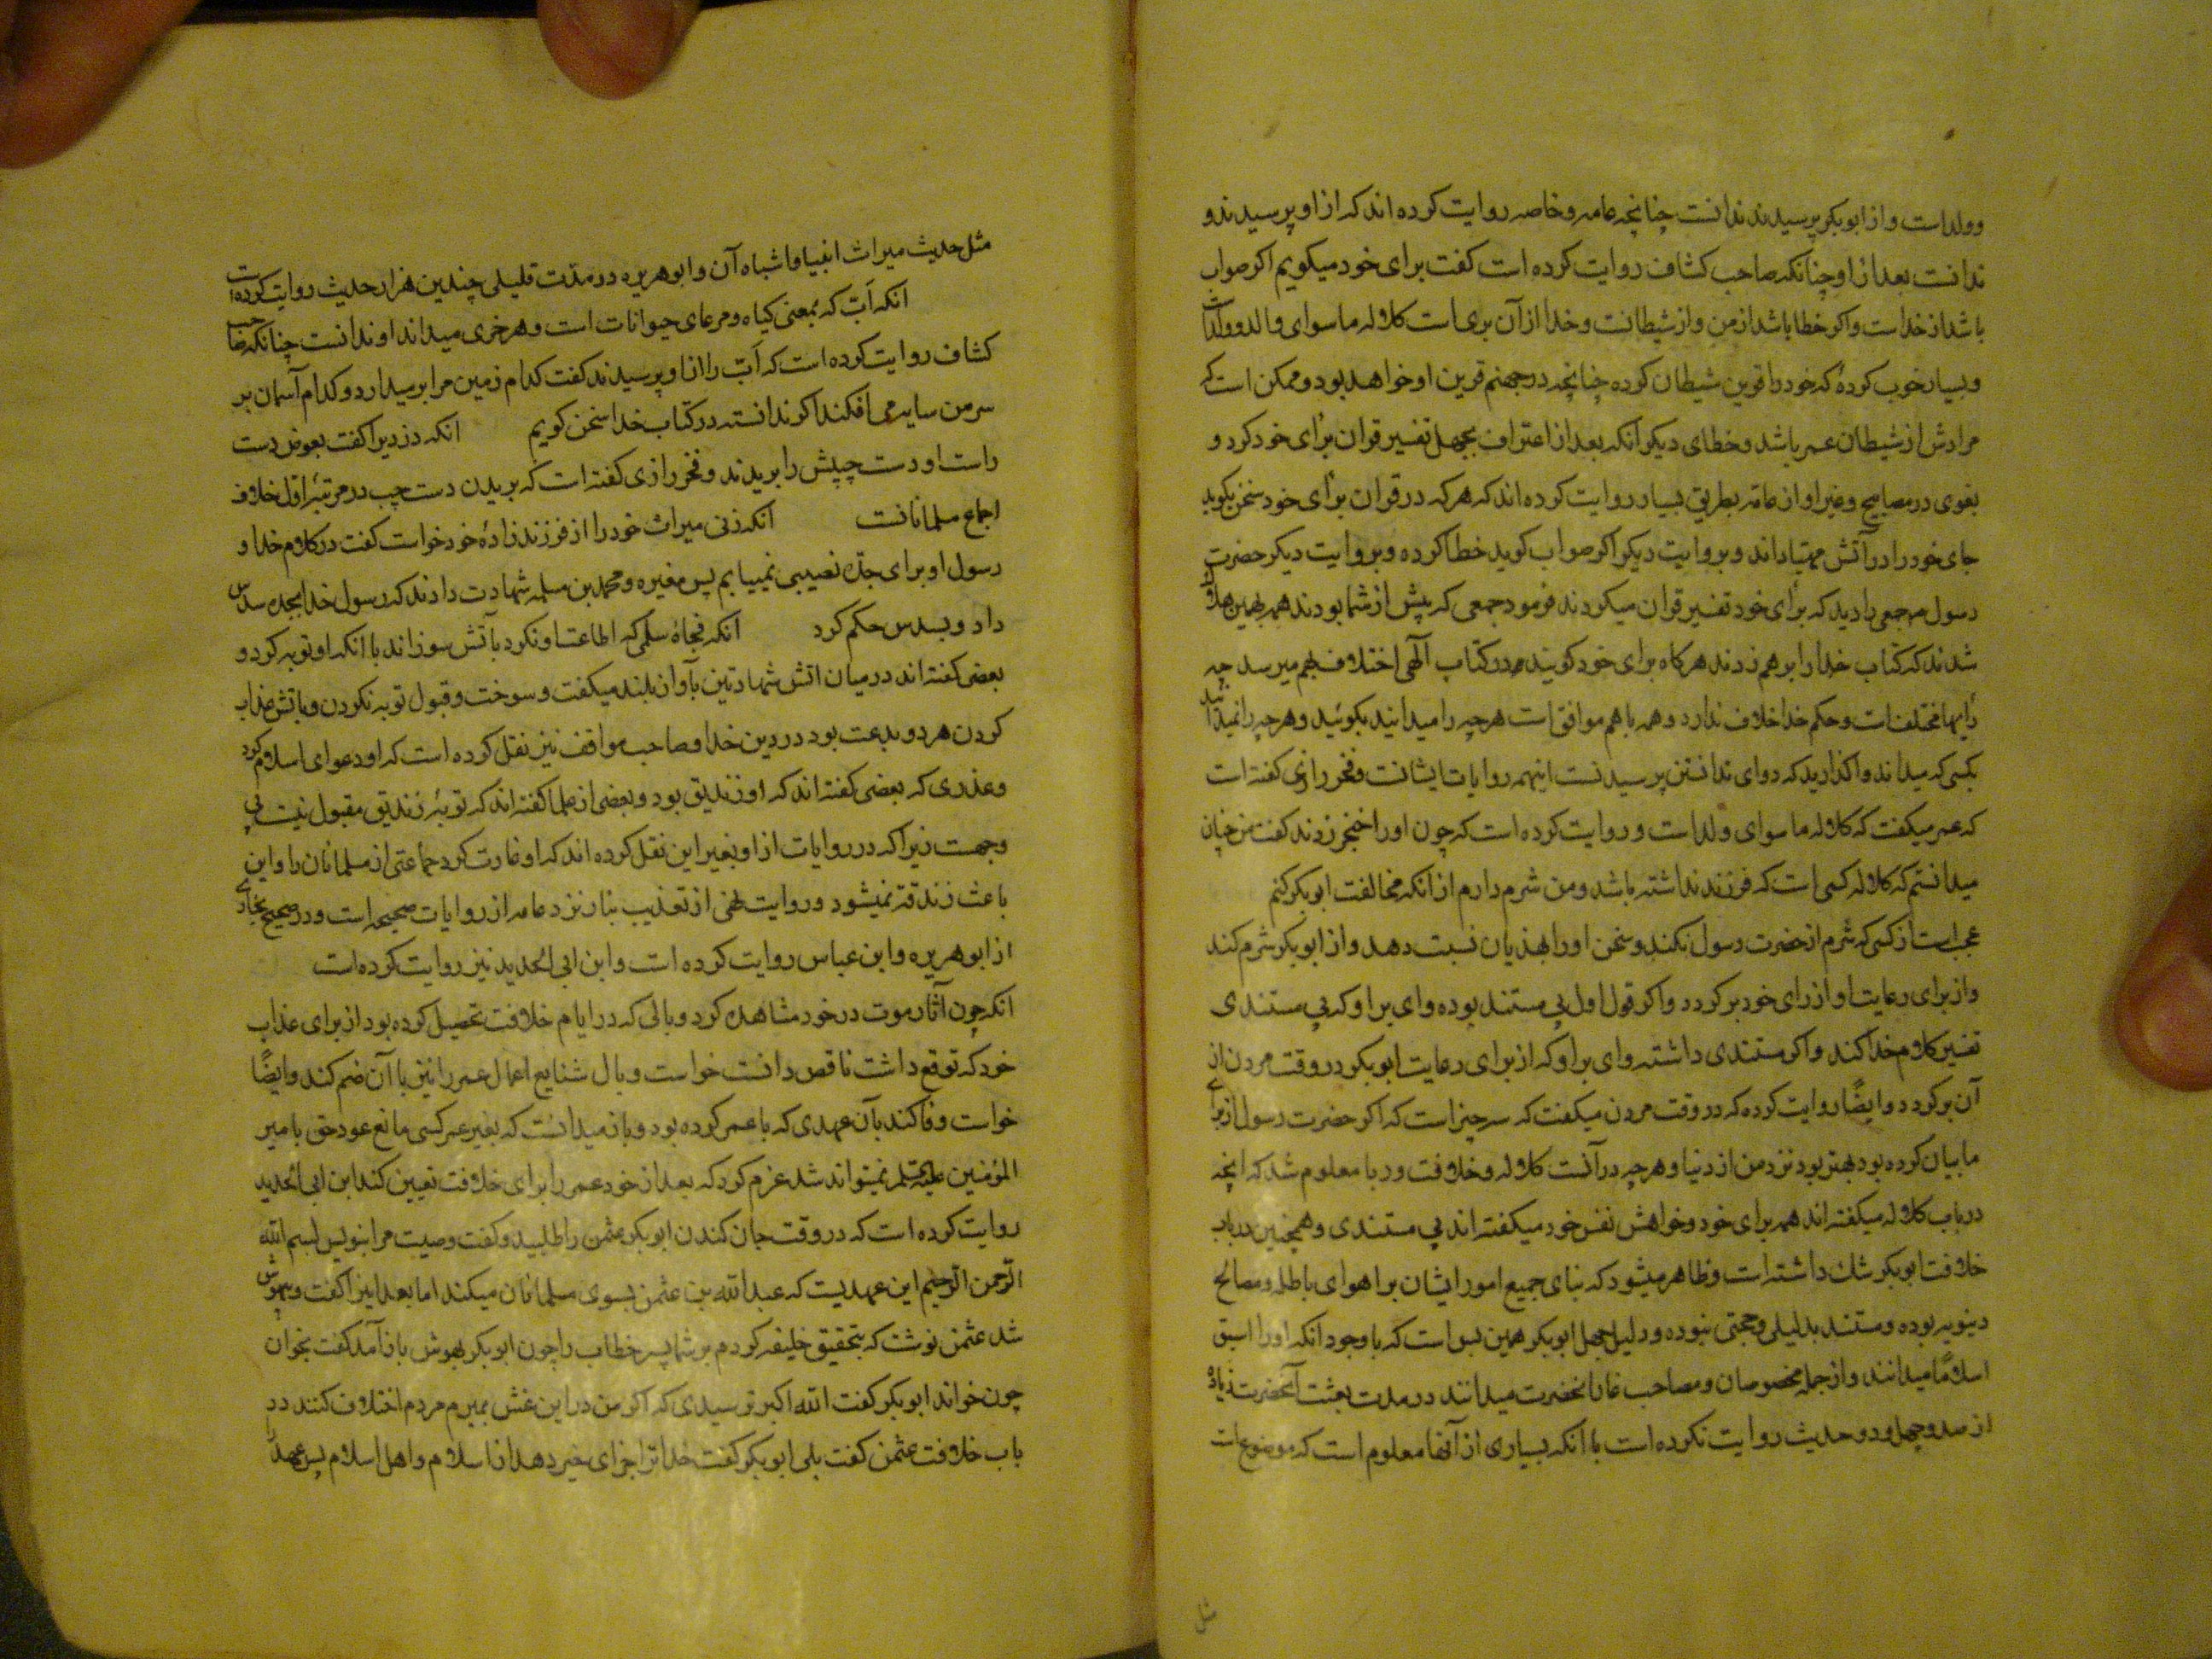 وولداست و از ابوبکر پرسیدند ندانست چنانچه عامه و خاصه روایت کرده اند که از او پرسیدند و
ندانست بعد از او چنانکه صاحب کشاف روایت کرده است کفت برای خود میکویم اکر صواب
باشد از خداست و اکر خطا باشد از من و از شیطانست و خدا از آن بری است کلاله ما سوای والد و ولدست
و بسیار خوب کرده که خود را قرین شیطان کرده چنانچه در جهنم قرین او خواهد بود و ممکن است که
مرادش از شیطان عمر باشد و خطای دیکر آنکه بعد از اعتراف بجهل تفسیر قران برأی خود کرد و
بغوی در مصابیح و غیر او از عامه بطریق بسیار روایت کرده اند که هر که در قران برأی خود سخن بکوید
جای خود را در آتش مهیا داند و بروایت دیکر اکر صواب کوید خطا کرده و بروایت دیکر حضرت
رسول ص جمعی را دید که برأی خود تفسیر قران میکردند فرمود جمعی که پیش از شما بودند همه بهمین هلاک
شدند که کتاب خدا را برهم زدند هرکاه برای خود کویند در کتاب آلهی اختلاف بهم میرسد چه
رأیها مختلف است و حکم خدا خلاف ندارد و همه با هم موافق است هرچه را میدانید بکوئید و هرچه را نمیدانید
بکسی که میداند واکذارید که دوای ندانستن پرسیدنست اینهمه روایات ایشانست و فخر رازی کفته است
که عمر میکفت که کلاله ما سوای ولد است و روایت کرده است که چون او را خنجر زدند کفت من چنان
میدانستم که کلاله کسی است که فرزند نداشته باشد و من شرم دارم از آنکه مخالفت ابوبکر کنم
عجب است از کسی که شرم از حضرت رسول نکند و سخن او را بهذیان نسبت دهد و از ابوبکر شرم کند
و از برای رعایت او از رای خود برکردد و اکر قول اول بی مستند بوده وای بر او که بی مستندی
تفسیر کلام خدا کند و اکر مستندی داشته وای بر او که از برای رعایت ابوبکر در وقت مردن از
آن برکردد و ایضًا روایت کرده که در وقت مردن میکفت که سه چیز است که اکر حضرت رسول از برای
ما بیان کرده بود بهتر بود نزد من از دنیا و هرچه در آنست کلاله و خلافت و ربا معلوم شد که انچه
در باب کلاله میکفته اند همه برای خود و خواهش نفس خود میکفته اند بی مستندی و همچنین در باب
خلافت ابوبکر شک داشته است و ظاهر میشود که بنای جمیع امور ایشان بر اهوای باطله و مصالح
دنیویه بوده و مستند بدلیلی و حجتی نبوده و دلیل جهل ابوبکر همین بس است که با وجود انکه او را اسبق
اسلامًا میدانند و از جمله مخصوصان و مصاحب غار انحضرت میدانند در مدت بعثت آنحضرت زیاده
از صد و چهل و دو حدیث روایت نکرده است با انکه بسیاری از آنها معلوم است که موضوع است
مثل
مثل حدیث میراث انبیا و اشباه آن و ابوهریره در مدت قلیلی چندین هزار حدیث روایت کرده است
انکه اَبّ که بمعنی کیاه و مرعای حیوانات است و هر خری میداند او ندانست چنانکه صاحب
کشاف روایت کرده است که اَبّ را از او پرسیدند کفت کدام زمین مرا برمیدارد و کدام آسمان بر
سر من سایه می افکند اکر ندانسته در کتاب خدا سخن کویم انکه دزدیرا کفت بعوض دست
راست او دست چپش را بریدند و فخر رازی کفته است که بریدن دست چپ در مرتبه اول خلاف
اجماع مسلمانانست انکه زنی میراث خود را از فرزند زادهٔ خود خواست کفت در کلام خدا و
رسول او برای جده نصیبی نمییابم پس مغیره و محمد بن مسلمه شهادت دادند که رسول خدا بجده سدس
داد و بسدس حکم کرد انکه فجاهٔ سلمی که اطاعت او نکرد بآتش سوزاند با انکه او توبه کرد و
بعضی کفته اند در میان اتش شهادتین بآواز بلند میکفت و سوخت و قبول توبه نکردن و باتش عذاب
کردن هر دو بدعت بود در دین خدا و صاحب مواقف نیز نقل کرده است که او دعوای اسلام کرد
و عذری که بعضی کفته اند که او زندیق بود و بعضی از علما کفته اند که توبهٔ زندیق مقبول نیست بی
وجهست زیرا که در روایات از او بغیر این نقل کرده اند که او غارت کرد جماعتی از مسلمانان را و این
باعث زندقه نمیشود و روایت نهی از تعذیب بنار نزد عامه از روایات صحیحه است و در صحیح بخاری
از ابوهریره و ابن عباس روایت کرده است و ابن ابی الحدید نیز روایت کرده است
انکه چون آثار موت در خود مشاهده کرد و بالی که در ایام خلافت تحصیل کرده بود از برای عذاب
خود که توقع داشت ناقص دانست خواست وبال شنایع اعمال عمر را نیز با آن ضم کند و ایضًا
خواست وفا کند بآن عهدی که با عمر کرده بود و باز میدانست که بغیر عمر کسی مانع عود حق بامیر
المؤمنین نمیتواند شد عزم کرد که بعد از خود عمر را برای خلافت تعیین کند ابن ابی الحدید
روایت کرده است که در وقت جان کندن ابوبکر عثمن را طلبید و کفت وصیت مرا بنویس بسم الله
الرحمن الرحیم این عهدیست که عبد الله بن عثمن بسوی مسلمانان میکند اما بعد اینرا کفت و بیهوش
شد عثمن نوشت که بتحقیق خلیفه کردم بر شما پسر خطاب را چون ابوبکر بهوش باز آمد کفت بخوان
چون خواند ابوبکر کفت الله اکبر ترسیدی که اکر من در این غش بمیرم مردم اختلاف کنند در
باب خلافت عثمن کفت بلی ابوبکر کفت خدا ترا جزای خیر دهد از اسلام و اهل اسلام پس عهد را